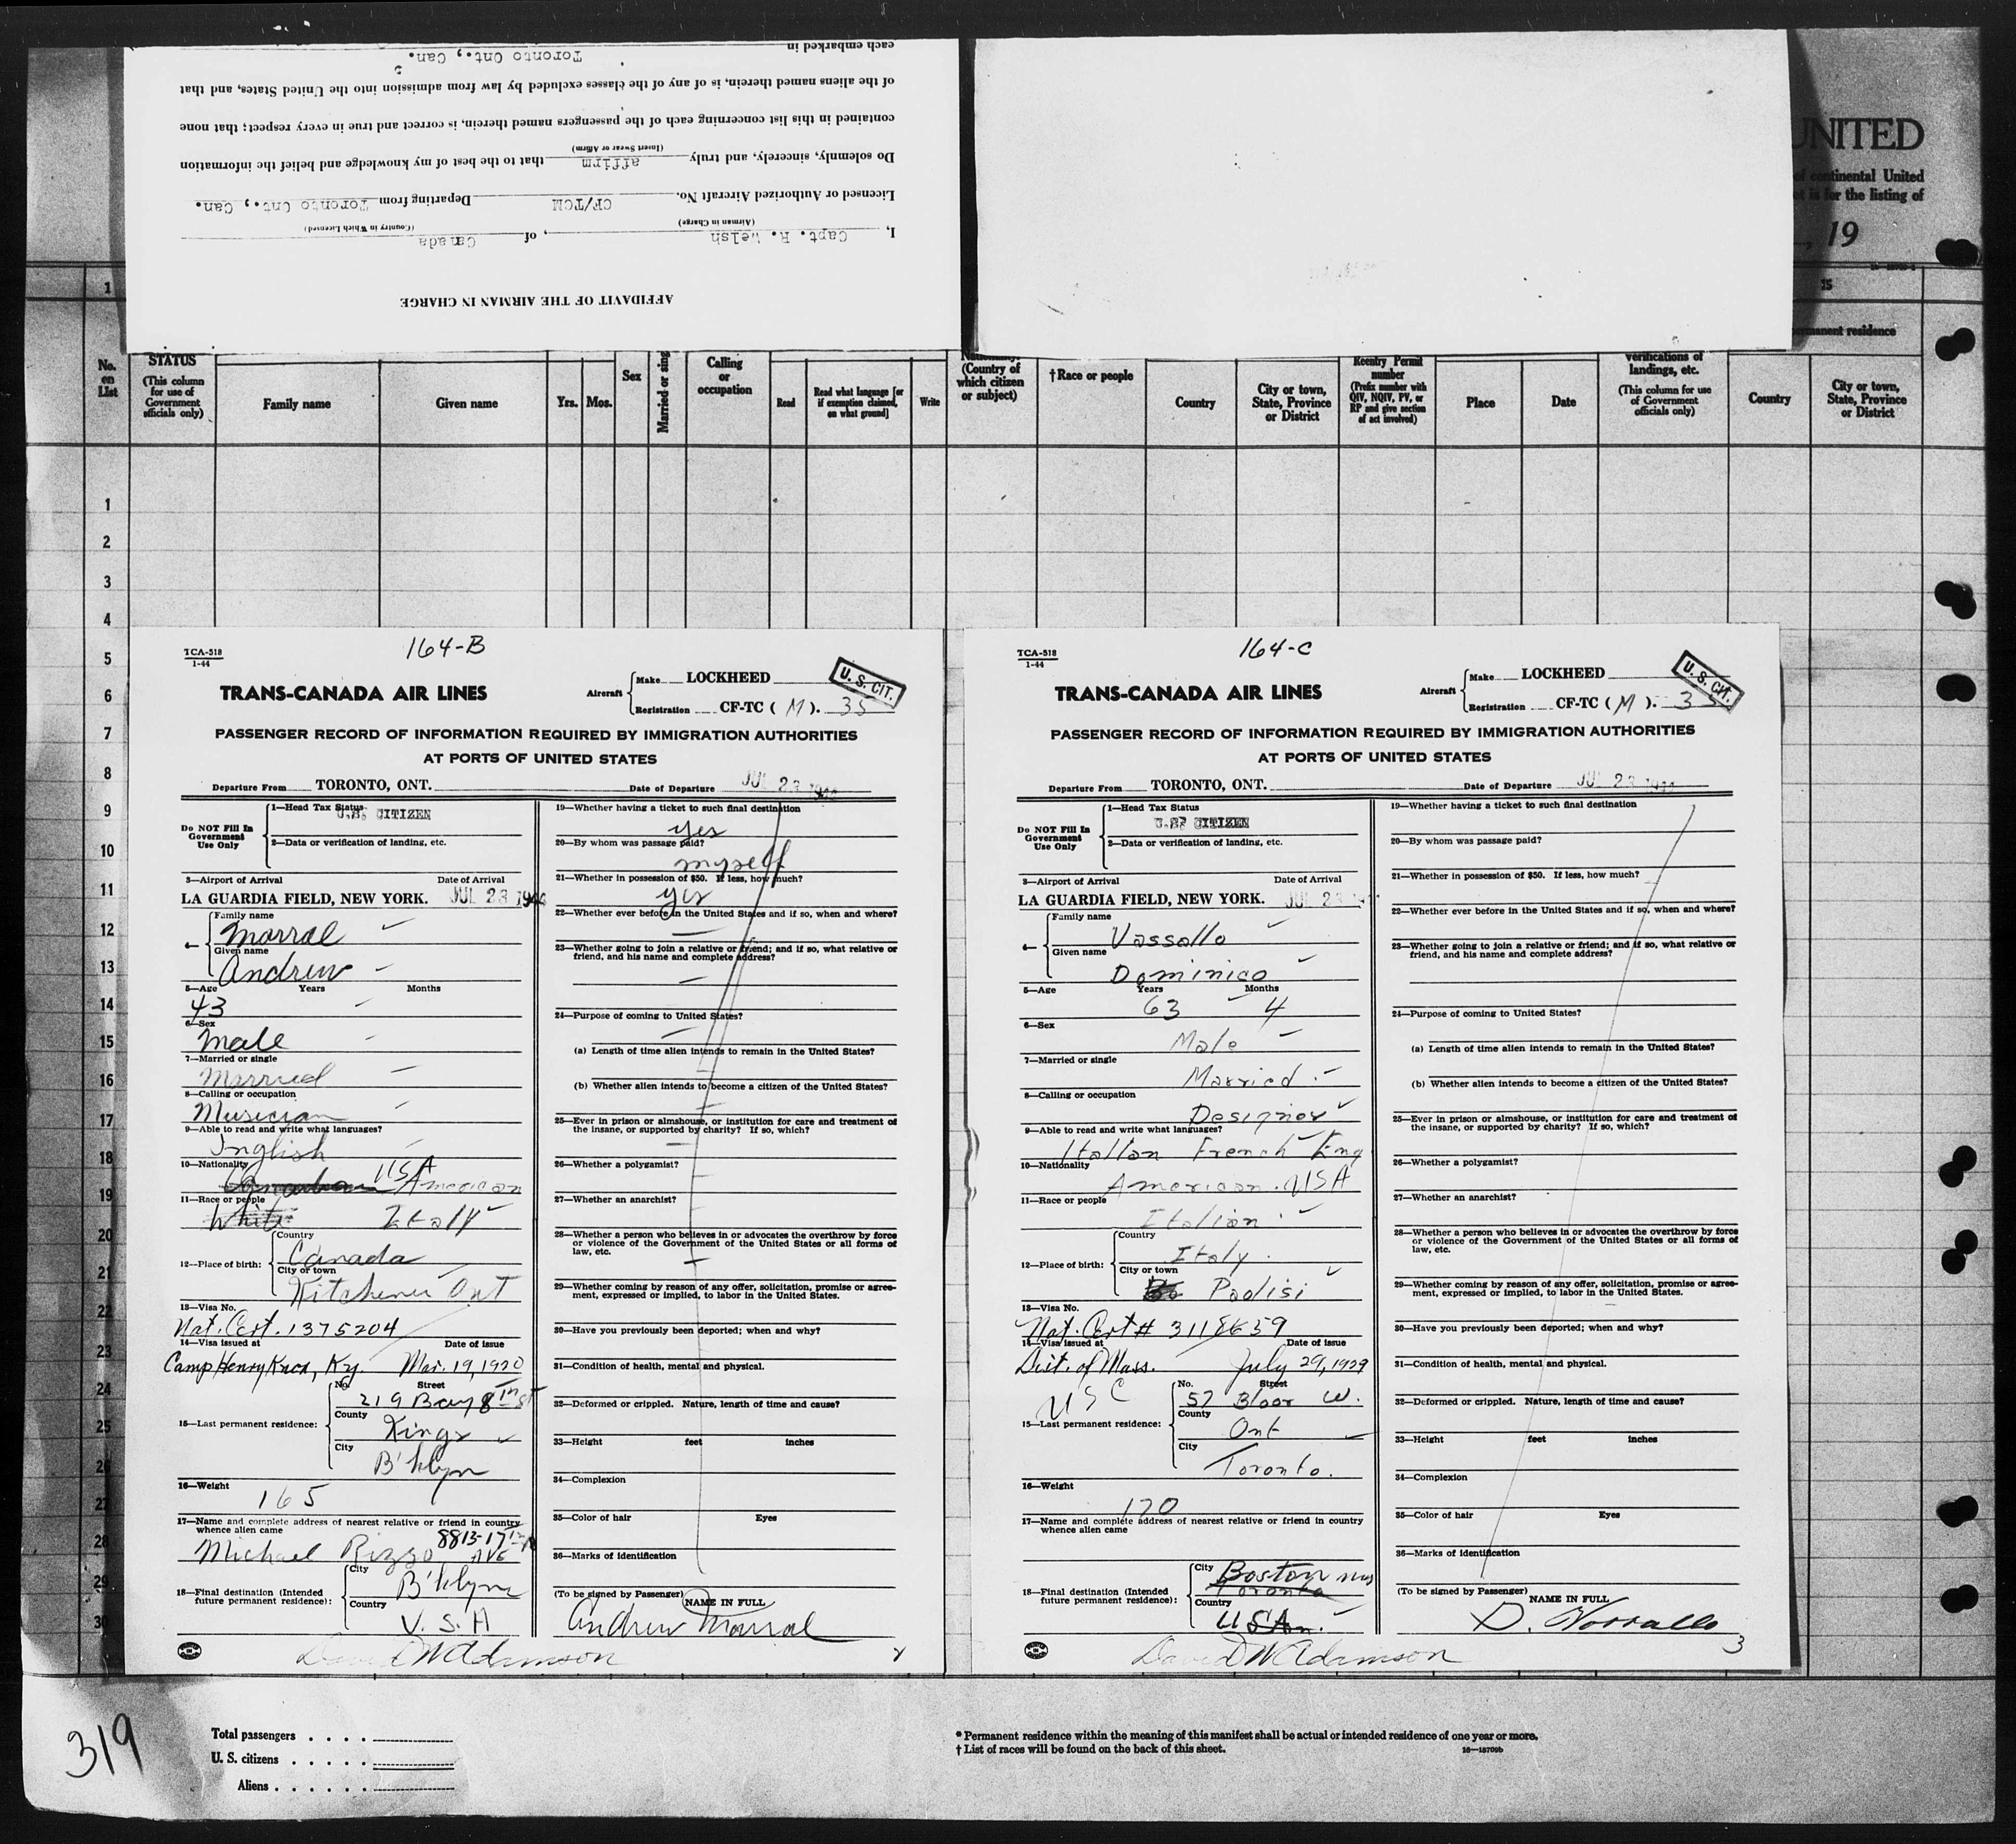 AFFIDAVIT OF THE AIRMAN IN CHARGE
I, Capt. R. Welsh, of Canada
(Airman in Charge) (Country in Which Licensed)
Licensed or Authorized Aircraft No. CF/TCM Departing from Toronto Ont., Can.
Do solemnly, sincerely, and truly affirm that to the best of my knowledge and belief the information
(Insert Swear or Affirm)
contained in this list concerning each of the passengers named therein, is correct and true in every respect; that none
of the aliens named therein, is of any of the classes excluded by law from admission into the United States, and that
each embarked in Toronto Ont., Can.
UNITED
of continental United
is for the listing of
, 19
1
15
permanent residence
No. on List
STATUS
(This column for use of Government officials only)
Family name
Given name
Yrs.
Mos.
Sex
Married or sing
Calling or occupation
Read
Read what language [or if exemption claimed, on what ground]
Write
(Country of which citizen or subject)
†Race or people
Country
City or town, State, Province or District
Reentry Permit number
(Prefix number with QIV, NQIV, PV, or RP and give section of act involved)
Place
Date
verifications of landings, etc.
(This column for use of Government officials only)
Country
City or town, State, Province or District
1
2
3
4
5
6
7
8
9
10
11
12
13
14
15
16
17
18
19
20
21
22
23
24
25
26
27
28
29
30
TCA-518
1-44
164-B
U. S. CIT.
TRANS-CANADA AIR LINES
Aircraft Make LOCKHEED
Registration CF-TC (M). 35
PASSENGER RECORD OF INFORMATION REQUIRED BY IMMIGRATION AUTHORITIES
AT PORTS OF UNITED STATES
Departure From TORONTO, ONT. Date of Departure JUL 23
Do NOT Fill In Government Use Only
1—Head Tax Status
U.S. CITIZEN
2—Data or verification of landing, etc.
3—Airport of Arrival Date of Arrival
LA GUARDIA FIELD, NEW YORK. JUL 23 1944
4—
Family name
Marral
Given name
Andrew
5—Age Years Months
43
6—Sex
Male
7—Married or single
Married
8—Calling or occupation
Musician
9—Able to read and write what languages?
Inglish
10—Nationality
USA American
11—Race or people
White Italy
12—Place of birth:
Country
Canada
City or town
Kitchener Ont
13—Visa No.
Nat. Cert. 1375204
14—Visa issued at Date of issue
Camp Henry Knox, Ky. Mar. 19, 1920
15—Last permanent residence:
No. Street
219 Bay 8th St
County
Kings
City
B'klyn
16—Weight
165
17—Name and complete address of nearest relative or friend in country whence alien came
Michael Rizzo 8813-17th AVE
18—Final destination (Intended future permanent residence):
City
B'klyn
Country
U.S.A
19—Whether having a ticket to such final destination
yes
20—By whom was passage paid?
myself
21—Whether in possession of $50. If less, how much?
yes
22—Whether ever before in the United States and if so, when and where?
23—Whether going to join a relative or friend; and if so, what relative or
friend, and his name and complete address?
24—Purpose of coming to United States?
(a) Length of time alien intends to remain in the United States?
(b) Whether alien intends to become a citizen of the United States?
25—Ever in prison or almshouse, or institution for care and treatment of
the insane, or supported by charity? If so, which?
26—Whether a polygamist?
27—Whether an anarchist?
28—Whether a person who believes in or advocates the overthrow by force
or violence of the Government of the United States or all forms of
law, etc.
29—Whether coming by reason of any offer, solicitation, promise or agree-
ment, expressed or implied, to labor in the United States.
30—Have you previously been deported; when and why?
31—Condition of health, mental and physical.
32—Deformed or crippled. Nature, length of time and cause?
33—Height feet inches
34—Complexion
35—Color of hair Eyes
36—Marks of identification
(To be signed by Passenger) NAME IN FULL
Andrew Marral
David W Adamson
TCA-518
1-44
164-C
U. S. CIT.
TRANS-CANADA AIR LINES
Aircraft Make LOCKHEED
Registration CF-TC (M). 35
PASSENGER RECORD OF INFORMATION REQUIRED BY IMMIGRATION AUTHORITIES
AT PORTS OF UNITED STATES
Departure From TORONTO, ONT. Date of Departure JUL 23 1944
Do NOT Fill In Government Use Only
1—Head Tax Status
U.S. CITIZEN
2—Data or verification of landing, etc.
3—Airport of Arrival Date of Arrival
LA GUARDIA FIELD, NEW YORK. JUL 23
4—
Family name
Vassallo
Given name
Dominico
5—Age Years Months
63 4
6—Sex
Male
7—Married or single
Married
8—Calling or occupation
Designer
9—Able to read and write what languages?
Italian French Eng
10—Nationality
American. USA
11—Race or people
Italian
12—Place of birth:
Country
Italy
City or town
Paolisi
13—Visa No.
Nat. Cert # 3118659
14—Visa issued at Date of issue
Dist. of Mass. July 29, 1929
USC
15—Last permanent residence:
No. Street
57 Bloor W.
County
Ont
City
Toronto.
16—Weight
170
17—Name and complete address of nearest relative or friend in country
whence alien came
18—Final destination (Intended future permanent residence):
City
Boston Mas
Toronto
Country
USA
19—Whether having a ticket to such final destination
20—By whom was passage paid?
21—Whether in possession of $50. If less, how much?
22—Whether ever before in the United States and if so, when and where?
23—Whether going to join a relative or friend; and if so, what relative or
friend, and his name and complete address?
24—Purpose of coming to United States?
(a) Length of time alien intends to remain in the United States?
(b) Whether alien intends to become a citizen of the United States?
25—Ever in prison or almshouse, or institution for care and treatment of
the insane, or supported by charity? If so, which?
26—Whether a polygamist?
27—Whether an anarchist?
28—Whether a person who believes in or advocates the overthrow by force
or violence of the Government of the United States or all forms of
law, etc.
29—Whether coming by reason of any offer, solicitation, promise or agree-
ment, expressed or implied, to labor in the United States.
30—Have you previously been deported; when and why?
31—Condition of health, mental and physical.
32—Deformed or crippled. Nature, length of time and cause?
33—Height feet inches
34—Complexion
35—Color of hair Eyes
36—Marks of identification
(To be signed by Passenger) NAME IN FULL
D. Vassallo
David W Adamson
3
319
Total passengers
U. S. citizens
Aliens
* Permanent residence within the meaning of this manifest shall be actual or intended residence of one year or more.
† List of races will be found on the back of this sheet.
16—18709b